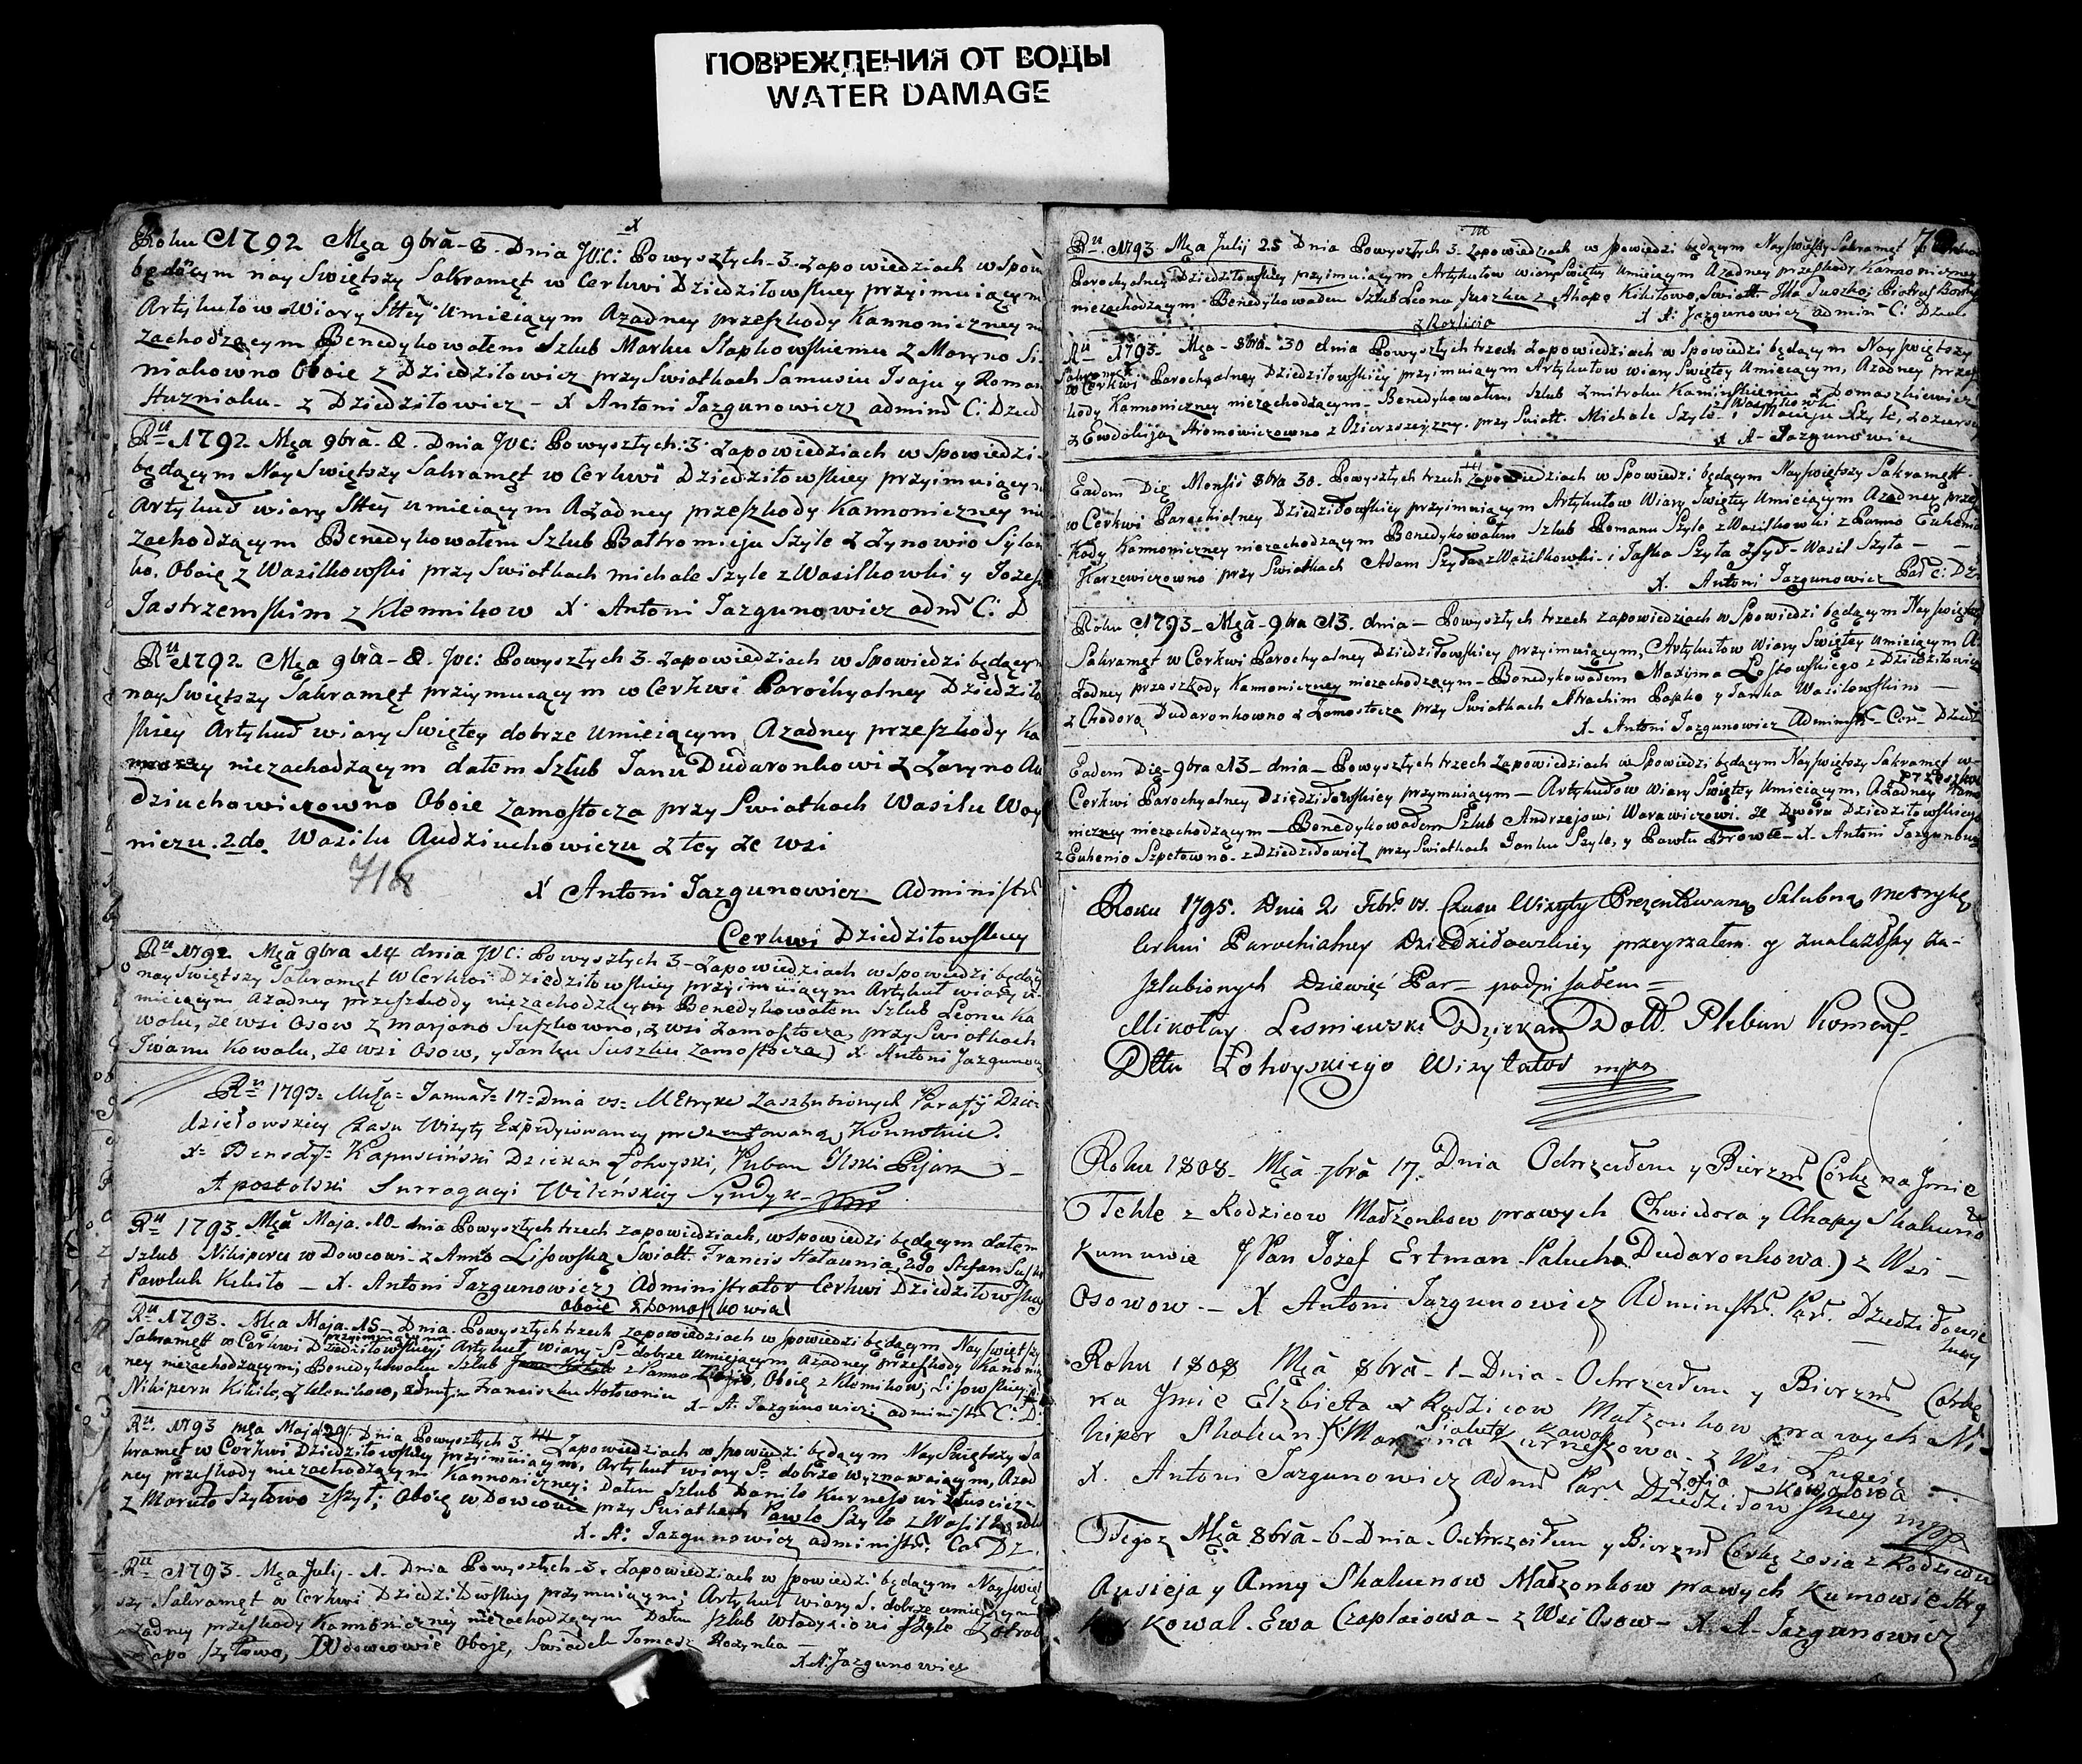 ПОВРЕЖДЕНИЯ ОТ ВОДЫ
WATER DAMAGE
x
Roku 1792 Mca 9brã - 8. Dnia JVC: Powyszłych - 3. Zapowiedziach w Spow
będącym nay Swiętszy Sakramęt w Cerkwi Dziedziłowskiey przyimuiącym
Artykułow Wiary Stey Umieiącym Azadney przeszkody Kannoniczney n
zachodzącym Benedykowałem Szlub Marku Słapkowskiemu z Maryno Si
niakowno Oboie z Dziedziłowicz przy Swiatkach Samusiu Isaju y Roman
Huzniaku - z Dziedziłowicz - X Antoni Jazgunowicz admind C: Dzied
Ru 1792 Mca 9brã - 8. Dnia JVC: Powyszłych: 3. Zapowiedziach w Spowiedzi
będącym Nay Swiętszy Sakramęt w Cerkwi Dziedziłowskiey przyimuiącym
Artykuł wiary Stey umieiącym Ażadney przeszkody Kannoniczney nie
zachodzącym Benedykowałem Szlub Bałtromieju Szyle z Zynowio Sylan
ko. Oboię z Wasilkowski przy Swiatkach michale Szyle z Wasilkowki y Jozef
Jastrzemskim z Klennikow X Antoni Jazgunowicz admd C: D
Ru 1792 Mca 9brã - 8. JVC: Powyszłych 3. Zapowiedziach w Spowiedzi będącym
nay Swiętszy Sakramęt przyimuiącym w Cerkwi Parochyalney Dziedziło
skiey Artykuł wiary Swiętey dobrze Umieiącym Azadney przeszkody Ka
niezachodzącym dałem Szlub Janu Dudaronkowi z Zaryno Au
dziuchowiczowno Oboie Zamostocza przy Swiatkach Wasilu Woy
niczu. 2do. Wasilu Audziuchowiczu z tey ze wsi
X Antoni Jazgunowicz Administrd
Cerkwi Dziedziłowskiey
Ru 1792 Mcã 9bra 14 dnia JVC: Powyszłych 3 - Zapowiedziach w Spowiedzi będący
nay Swiętszy Sakramęt w Cerkwi Dziedziłowskiey przyimuiącym Artykuł wiary u-
mieiącym azadney przeszkody niezachodzącym Benedykowałem Szlub Leonu Ka
walu, ze wsi Osow z marjano Suszkowno, z wsi Zamostocza, przy Swiatkach
Iwanu Kowalu, ze wsi Osow, y Janku Suszku Zamostocza) X Antoni Jazgunow
Ru 1793 = Mca = Januar = 17 = Dnia vs = Metryke Zaszlubionych Parafij Dzie-
dziełowskiey Czasu Wizyty Expedyiowaney prezentowaną Konnotuie.
X = Benedyk Kapusciński Dziekan Łohoyski, Pleban Pisarz
Apostolski Surrogacyi Wileńskiey Syndyk
Ru 1793. Mcã Maja. 10 - dnia Powyszłych trzech zapowiedziach, w Spowiedzi będącym dałem
Szlub Nikiperu w Dowcowi - z Anno Lisowską Swiatt. Francis Hołaunia, 2do Stefan Sus
Pawluk Kikiło - X. Antoni Jazgunowicz, Administrator Cerkwi Dziedziłowskiey
Oboie
Ru 1793. Mca Maja. 15 - Dnia. Powyszłych trzech zapowiedziach w spowiedzi będącym Nayswiętszy
Sakramętt w Cerkwi Dziedziłowskiey przyimuiącym Artykuł wiary - S. dobrze umiejącym azadney przeszkody Kanonicz
ney niezachodzącym; Benedykowałem Szlub z Panno Oboię z Klennikow; Lisowskiey
Nikiperu Kikiło, z Klenikow, Franciszku Hołowniu
X - A. Jazgunowicz administrd C: D:
Ru 1793 mca Maja 29. Dnia Powyszłych 3 Zapowiedziach w spowiedzi będącym Nay Swiętszy Sa
kramęt w Cerkwi Dziedziłowskiey przyimuiącym, Artykuł wiary S. dobrze wyznawaiącym, Azad
ney przeszkody niezachodzącym Kannoniczney: Dałem Szlub Daniło Kurneszowi
z Maruto Szyłowo; Oboię w Dowcowie przy Swiatkach Pawle Szyle z Wasilkowki
X. A: Jazgunowicz administrd. Cer Dz.
Ru 1793. Mca Julij - 1. Dnia Powyszłych - 3. Zapowiedziach w spowiedzi będącym Nayswięt
szy Sakramęt w Cerkwi Dziedziłowskiey przyimuiącym; Artykuł wiary S. dobrze umieiącym
azadney przeszkody Kannoniczney niezachodzącym Dałem Szlub Władysiowi Szyle
Szyłowo, Wdowcowie Oboje, Swiadek Tomasz Rodynka -
X A: Jazgunowicz
Ru 1793 Mca Julij 25 Dnia Powyszłych 3. Zapowiedziach w spowiedzi będącym Nayswiętszy Sakramęt
Parochyalney Dziedziłowskiey przyimuiącym Artykułow wiary Swiętey Umieiącym Azadney przeszkody Kannoniczney
niezachodzącym. Benedykowałem Szlub Leonu Suszku z Ahapo Kikiłowo, Swiatt. Suszko; Piotruś
X A: Jazgunowicz admin C: Dzied.
Ru 1793. Mca - 8brã. 30 dnia Powyszłych trzech Zapowiedziach w Spowiedzi będącym Nayswiętszy
Sakramęt
w Cerkwi Parochyalney Dziedziłowskiey przyimuiącym Artykułow wiary Swiętey Umieiącym, Azadney przesz
kody Kannoniczney niezachodzącym - Benedykowałem Szlub Zmitroku Kamińskiemu z Domaszkiewicz
z Ewdokiją Hromowiczowno z Ozierszczyzny. przy Swiatt. Michale Szyle
X A - Jazgunowicz
Eadem Die Mensis 8bra 30. Powyszłych trzech zapowiedziach w Spowiedzi będącym Nayswiętszy Sakramętt
w Cerkwi Parochialney Dziedziłowskiey przyimuiącym Artykułow Wiary Swiętey Umieiącym Azadney przesz
Kody Kannoniczney niezachodzącym Benedykowałem Szlub Romanu Szyle z Wasilkowki z Panno Euhenio
Karzewiczowno przy Swiatkach Adam Szyła z Wasilkowki - i Jaśko Szyła - Wasil Szyła - -
X. Antoni Jazgunowicz Pad C: Dz
Roku 1793 - Mcã - 9bra 13. dnia - Powyszłych trzech zapowiedziach w Spowiedzi będącym Nayswiętszy
Sakramęt w Cerkwi Parochyalney Dziedziłowskiey przyimuiącym, Artykułow Wiary Swiętey umieiącym A-
żadney przeszkody Kannoniczney niezachodzącym - Benedykowałem Maxyma Łostowskiego z Dziedziłowicz
z Chodorą Dudaronkowno z Zamostocza przy Swiatkach Atrachim Papko y Janka Wasilowskim -
X - Antoni Jazgunowicz Administr - Cer - Dziedz
Eadem Die - 9bra 13 - dnia - Powyszłych trzech Zapowiedziach w Spowiedzi będącym Nayswiętszy Sakramęt w-
Cerkwi Parochyalney Dziedziłowskiey przyimuiącym - Artykułow Wiary Swiętey Umieiącym, Ażadney przeszkody Kanno
niczney niezachodzącym - Benedykowałem Szlub Andrzejowi Warawiczowi. ze Dworu Dziedziłowskiego
z Euhenio Szpetowno - z Dziedziłowicz przy Swiatkach Janku Szyle, y Pawłu Browce - X. Antoni Jazgunow
Roku 1795. Dnia 2 Febr. vs. Czasu Wizyty Prezentowaną Szlubną metrykę
Cerkwi Parochialney Dziedziłowskiey przeyrzałem y znalazłszy Za-
szlubionych Dziewięć Par = podpisałem =
Mikołay Lesniewski Dziekan Doll. Pleban Komens.
Dttu Łohoyskiego Wizytator mpp
Roku 1808 - Mcã 7brã 17. Dnia Ochrzciłem y Bierzmd Córkę na Jmie
Tekle z Rodzicow Małżonkow prawych Chwiedora y Ahapy Skakuno
Kumowie JPan Jozef Ertman Palucha Dudaronkowa) z Wsi -
Osowow. - X Antoni Jazgunowicz Administrd. Par. Dziedziłowsc
kiey
Roku 1808 Mcã 8brã - 1 - Dnia - Ochrzciłem y Bierzmd Corkę
na Jmie Elzbieta z Rodzicow Matzonkow prawych Ni-
kiper Skakun Kurneszowa - z Wsi
X. Antoni Jazgunowicz admd Par. Dziedziłowskiey mpp
Zofia Kowalowa
Tegoz Mcã 8brã - 6 - Dnia - Ochrzciłem y Bierzmd Córkę Zosia z Rodzicow
Ausieja y Anny Skakunow Małzonkow prawych Kumowie
Kowal. Ewa Czaplaiowa - z Wsi Osow - X. A - Jazgunowicz